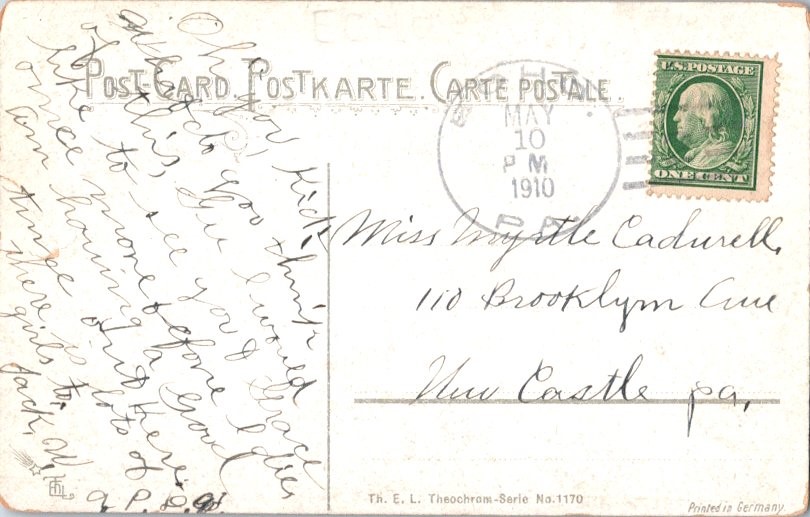 POST-CARD. POSTKARTE. CARTE POSTALE.
U.S. POSTAGE
ONE CENT
MAY
10
PM
1910
PA
Oh you Kid,
what do you think
of this, Gee I would
like to see you & Grace
once more before I dies
am having a good
time out here
there is lots of
girls to.
Jack. W.
Miss Myrtle Cadwell,
110 Brooklyn Ave
New Castle pa,
Th. E. L. Theochrom-Serie No. 1170
Printed in Germany